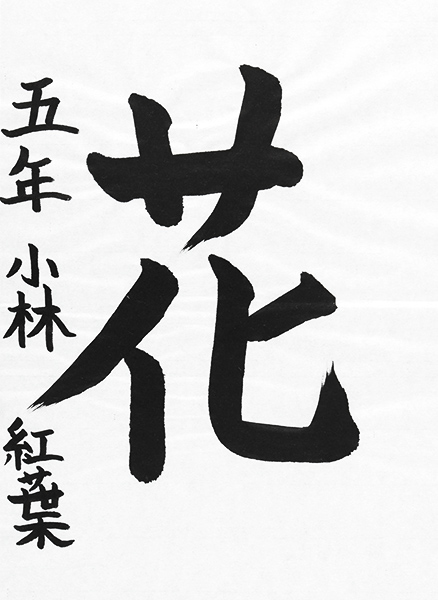 花
五年 小林 紅葉